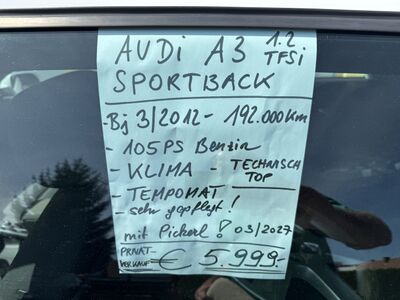 AUDi A3 1.2 TFSi
SPORTBACK
- Bj 3/2012 - 192.000 Km
- 105PS Benzin
- KLIMA - TECHNISCH TOP
- TEMPOMAT
- sehr gepflegt!
mit Pickerl! 03/2027
PRIVAT-VERKAUF € 5.999.-